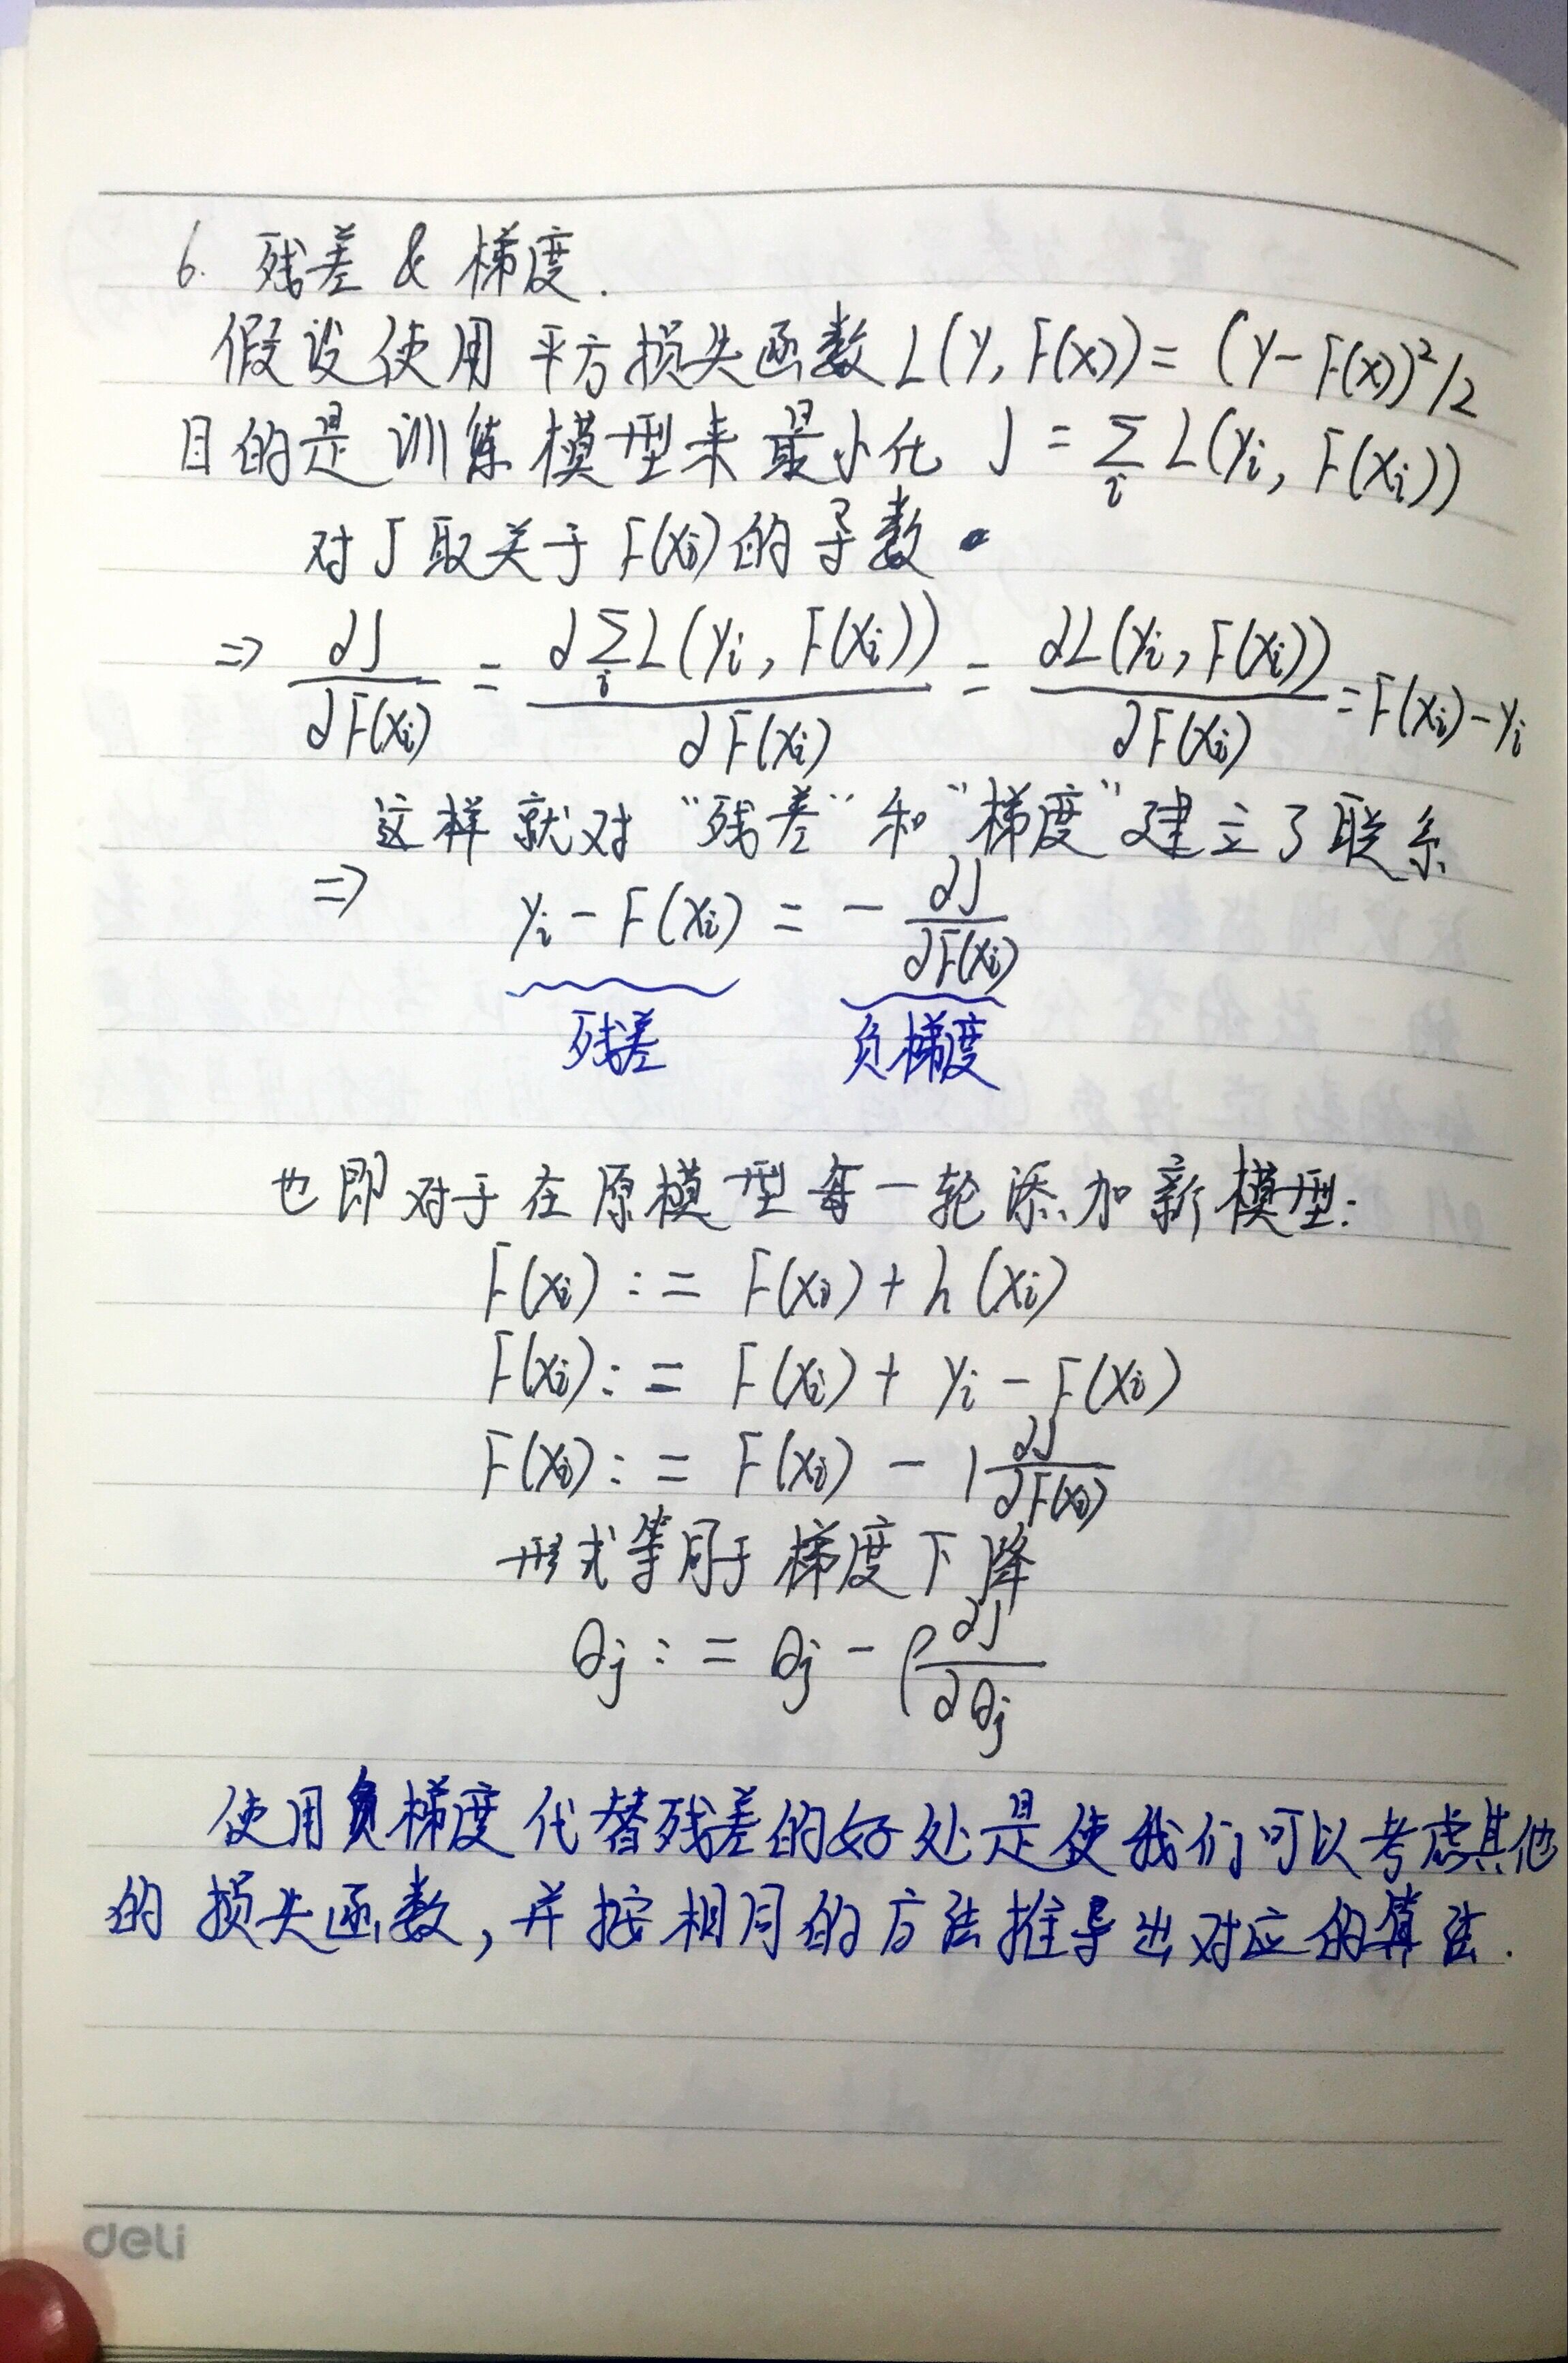 6. 残差 & 梯度.
假设使用平方损失函数 L(y, F(x)) = (y - F(x))²/2
目的是训练模型来最小化 J = ∑_i L(y_i, F(x_i))
对 J 取关于 F(x_i) 的导数
⇒ ∂J/∂F(x_i) = ∂∑_i L(y_i, F(x_i))/∂F(x_i) = ∂L(y_i, F(x_i))/∂F(x_i) = F(x_i) - y_i
这样就对“残差”和“梯度”建立了联系
⇒ y_i - F(x_i) = - ∂J/∂F(x_i)
残差 负梯度
也即对于在原模型每一轮添加新模型:
F(x_i) := F(x_i) + h(x_i)
F(x_i) := F(x_i) + y_i - F(x_i)
F(x_i) := F(x_i) - 1 ∂J/∂F(x_i)
形式等同于梯度下降
θ_j := θ_j - ρ ∂J/∂θ_j
使用负梯度代替残差的好处是使我们可以考虑其他
的损失函数, 并按相同的方法推导出对应的算法.
deli